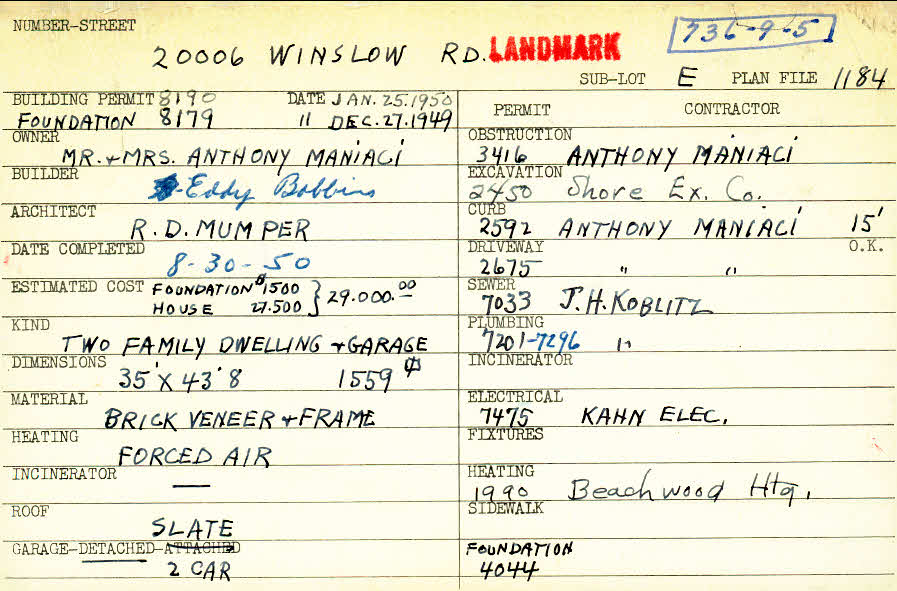 NUMBER-STREET
20006 WINSLOW RD. LANDMARK 736-9-5
SUB-LOT E PLAN FILE 1184
BUILDING PERMIT 8190 DATE JAN. 25. 1950
FOUNDATION 8179 " DEC. 27. 1949
OWNER
MR. + MRS. ANTHONY MANIACI
BUILDER
Eddy Bobbins
ARCHITECT
R. D. MUMPER
DATE COMPLETED
8-30-50
ESTIMATED COST FOUNDATION $1500
HOUSE 27.500 } 29.000.00
KIND
TWO FAMILY DWELLING + GARAGE
DIMENSIONS
35' X 43' 8 1559
MATERIAL
BRICK VENEER + FRAME
HEATING
FORCED AIR
INCINERATOR
—
ROOF
SLATE
GARAGE-DETACHED-ATTACHED
2 CAR
PERMIT CONTRACTOR
OBSTRUCTION
3416 ANTHONY MANIACI
EXCAVATION
2450 Shore Ex. Co.
CURB
2592 ANTHONY MANIACI 15'
DRIVEWAY O.K.
2675 " "
SEWER
7033 J. H. KOBLITZ
PLUMBING
7201-7296 "
INCINERATOR
ELECTRICAL
7475 KAHN ELEC.
FIXTURES
HEATING
1990 Beachwood Htg.
SIDEWALK
FOUNDATION
4044